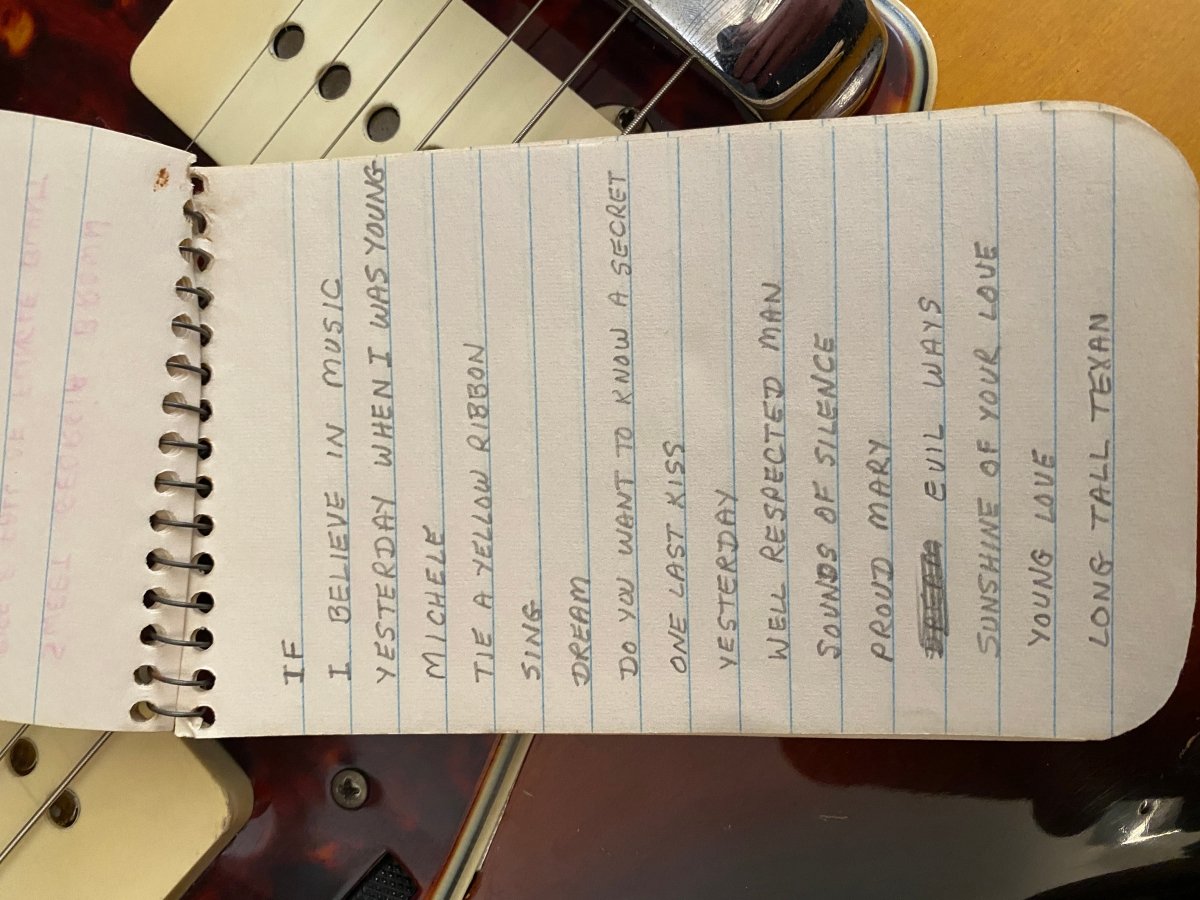 IF
I BELIEVE IN MUSIC
YESTERDAY WHEN I WAS YOUNG
MICHELE
TIE A YELLOW RIBBON
SING
DREAM
DO YOU WANT TO KNOW A SECRET
ONE LAST KISS
YESTERDAY
WELL RESPECTED MAN
SOUNDS OF SILENCE
PROUD MARY
EVIL WAYS
SUNSHINE OF YOUR LOVE
YOUNG LOVE
LONG TALL TEXAN